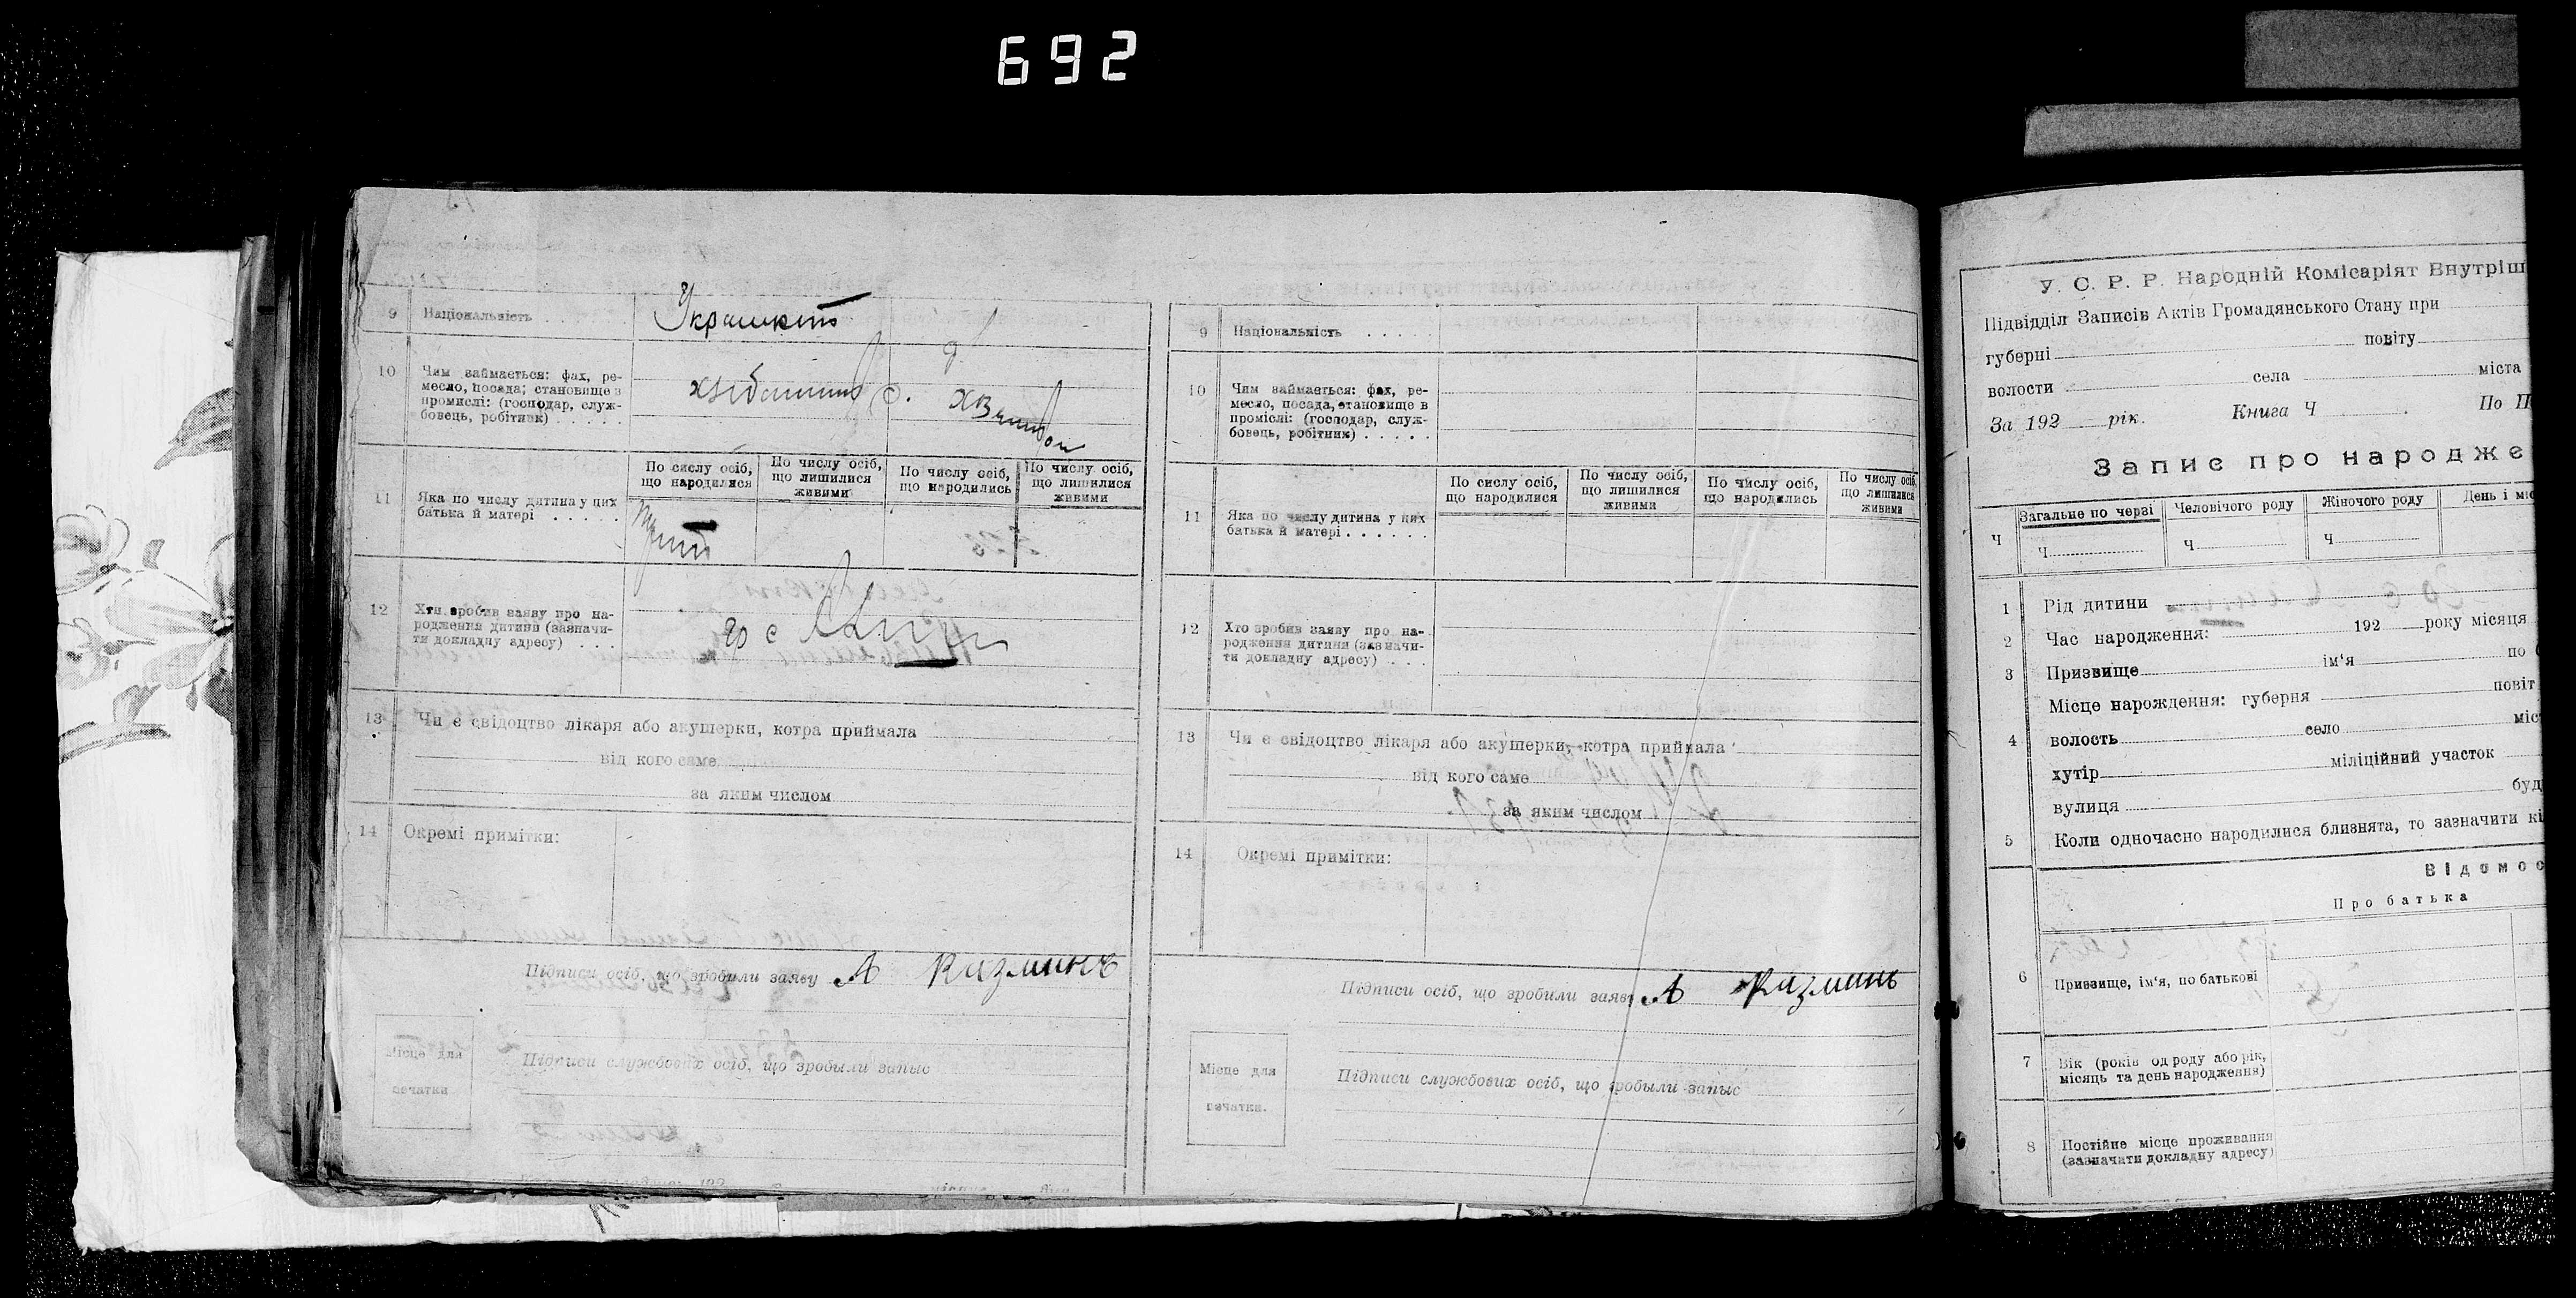 692
9 Національність . . . . .
10 Чим займається: фах, ре-
месло, посада; становище в
промислі: (господар, служ-
бовець, робітник) . . . . .
11 Яка по числу дитина у цих
батька й матері . . . . .
По сислу осіб,
що народилися
По числу осіб,
що лишилися
живими
По числу осіб,
що народились
По числу осіб,
що лишилися
живими
12 Хто зробив заяву про на-
родження дитини (зазначи-
ти докладну адресу) . . .
гр с
13 Чи є свідоцтво лікаря або акушерки, котра приймала
від кого саме
за яким числом
14 Окремі примітки:
Підписи осіб, що зробили заяву А Казминъ
Місце для
печатки
Підписи службових осіб, що зробыли запыс
9 Національність . . . .
10 Чим займається: фах, ре-
месло, посада, становище в
проміслі: (господар, служ-
бовець, робітник) . . . . .
11 Яка по числу дитина у них
батька й матері . . . . . .
По сислу осіб,
що народилися
По числу осіб,
що лишилися
живими
По числу осіб,
що народились
По числу осіб,
що лишилися
живими
12 Хто зробив заяву про на-
родження дитини (зазначи-
ти докладну адресу) . . . .
13 Чи є свідоцтво лікаря або акушерки, котра приймала
від кого саме
за яким числом
14 Окремі примітки:
Підписи осіб, що зробили заяву А Казминъ
Місце для
печатки.
Підписи службових осіб, що зробыли запыс
У. С. Р. Р. Народній Комісаріят Внутріш
Підвідділ Записів Актів Громадянського Стану при
губерні повіту
волости села міста
За 192 рік. Книга Ч . По П
Запис про народже
Ч Загальне по черзі Человічого роду Жіночого роду День і міс
Ч Ч Ч
1 Рід дитини
2 Час народження: 192 року місяця
3 Призвище ім'я по
Місце нарождення: губерня повіт
4 волость село міс
хутір міліційний участок
вулиця буд
5 Коли одночасно народилися близнята, то зазначити кі
Відомос
Про батька
6 Призвище, ім'я, по батькові
7 Вік (років од роду або рік,
місяць та день народження)
8 Постійне місце проживання
(зазначати докладну адресу)